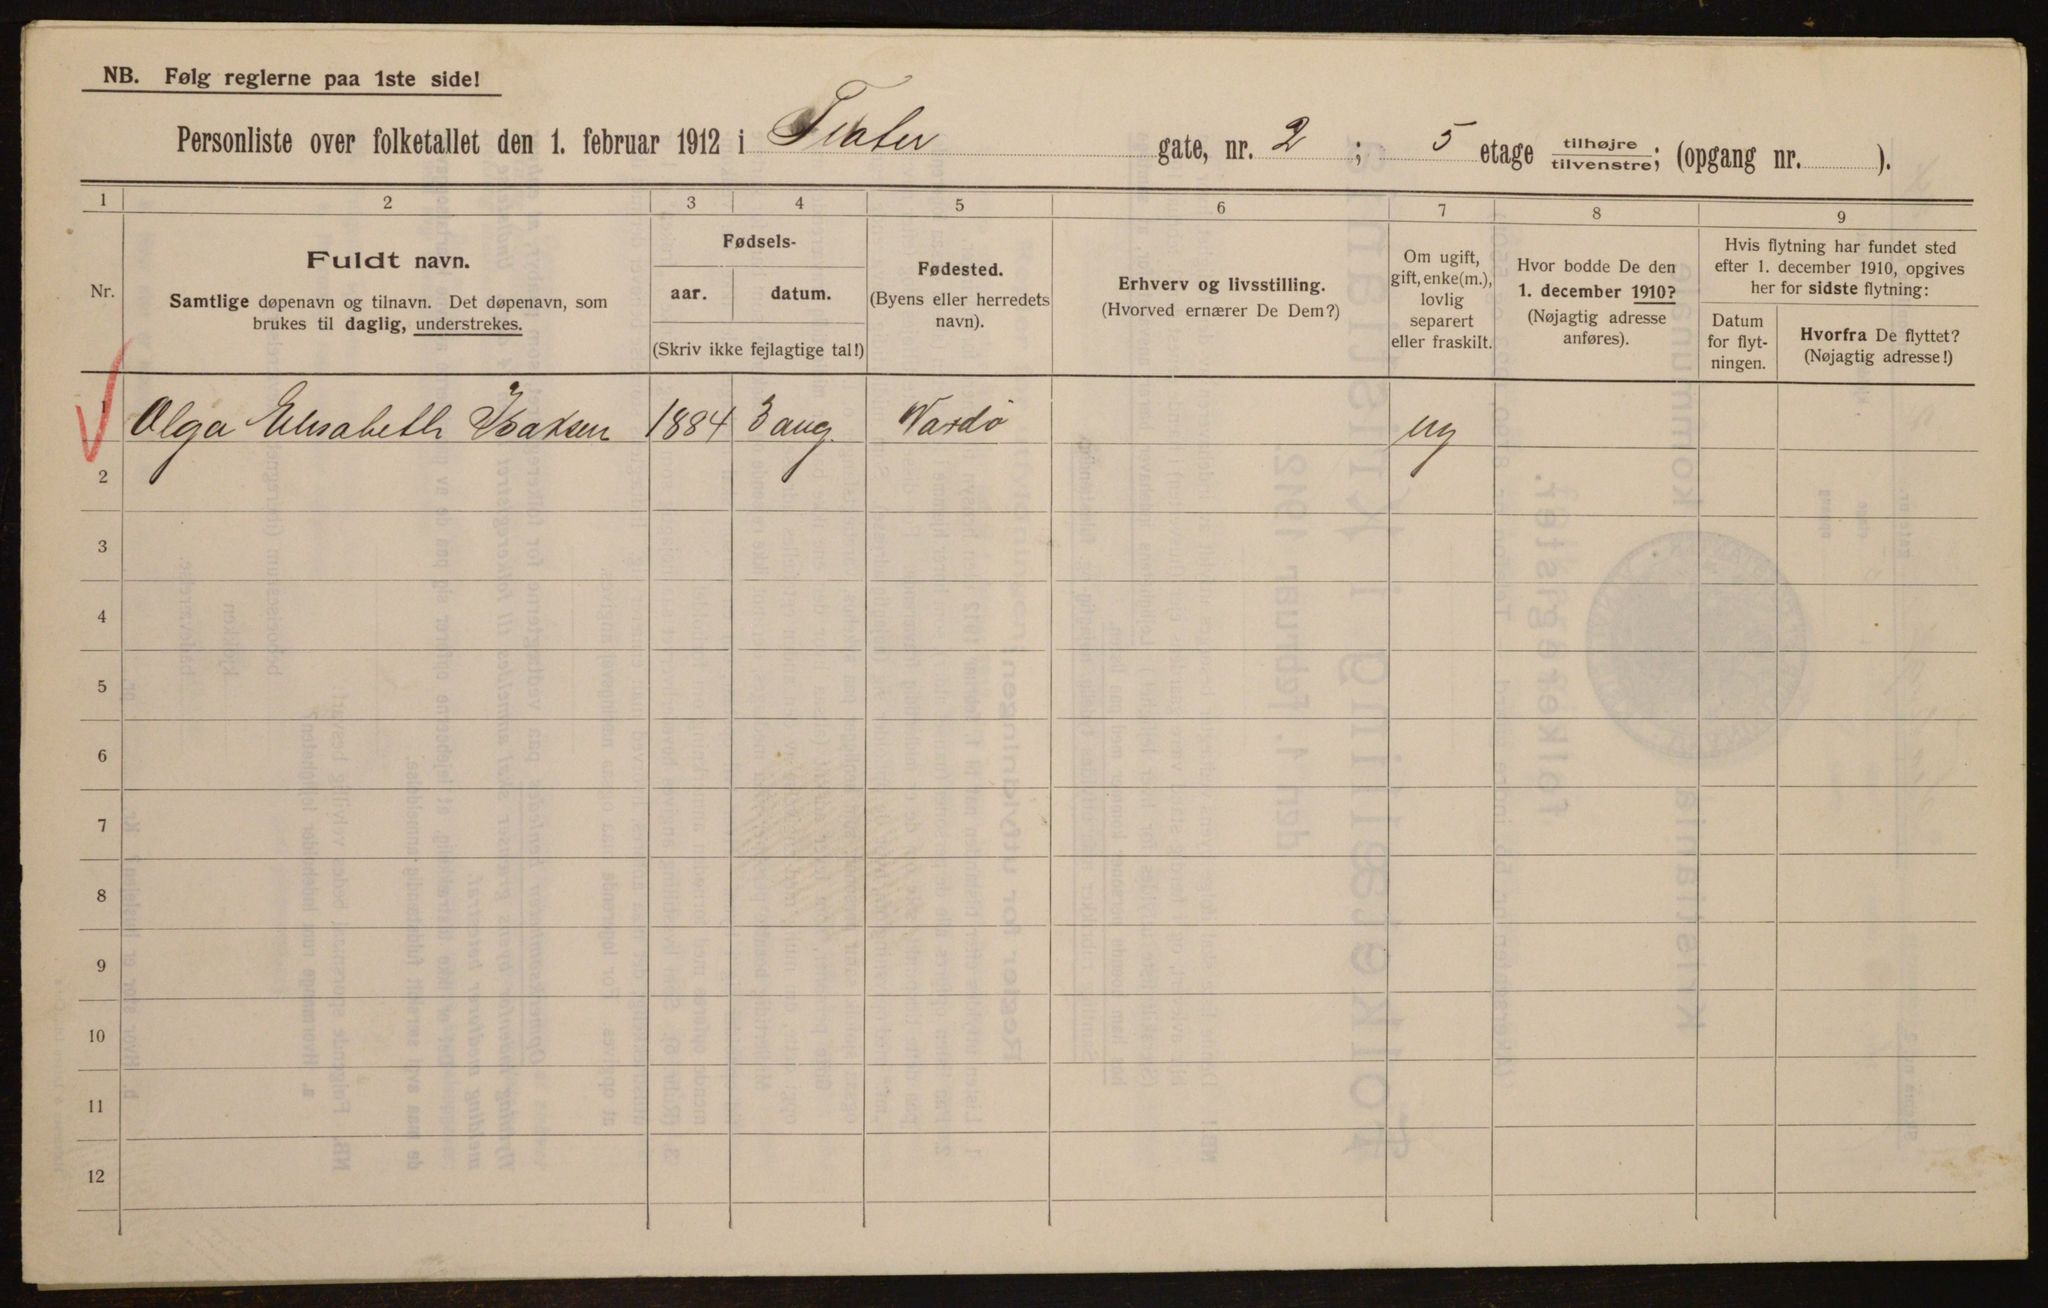 NB. Følg reglerne paa 1ste side!
Personliste over folketallet den 1. februar 1912 i Teater gate, nr. 2 ; 5 etage tilhøjre tilvenstre; (opgang nr. ).
1 2 3 4 5 6 7 8 9
Nr.
Fuldt navn.
Samtlige døpenavn og tilnavn. Det døpenavn, som
brukes til daglig, understrekes.
Fødsels-
aar. datum.
(Skriv ikke fejlagtige tal!)
Fødested.
(Byens eller herredets
navn).
Erhverv og livsstilling.
(Hvorved ernærer De Dem?)
Om ugift,
gift, enke(m.),
lovlig
separert
eller fraskilt.
Hvor bodde De den
1. december 1910?
(Nøjagtig adresse
anføres).
Hvis flytning har fundet sted
efter 1. december 1910, opgives
her for sidste flytning:
Datum
for flyt-
ningen.
Hvorfra De flyttet?
(Nøjagtig adresse!)
1 Olga Elisabeth Isaksen 1884 3 aug. Vardö ug
2
3
4
5
6
7
8
9
10
11
12